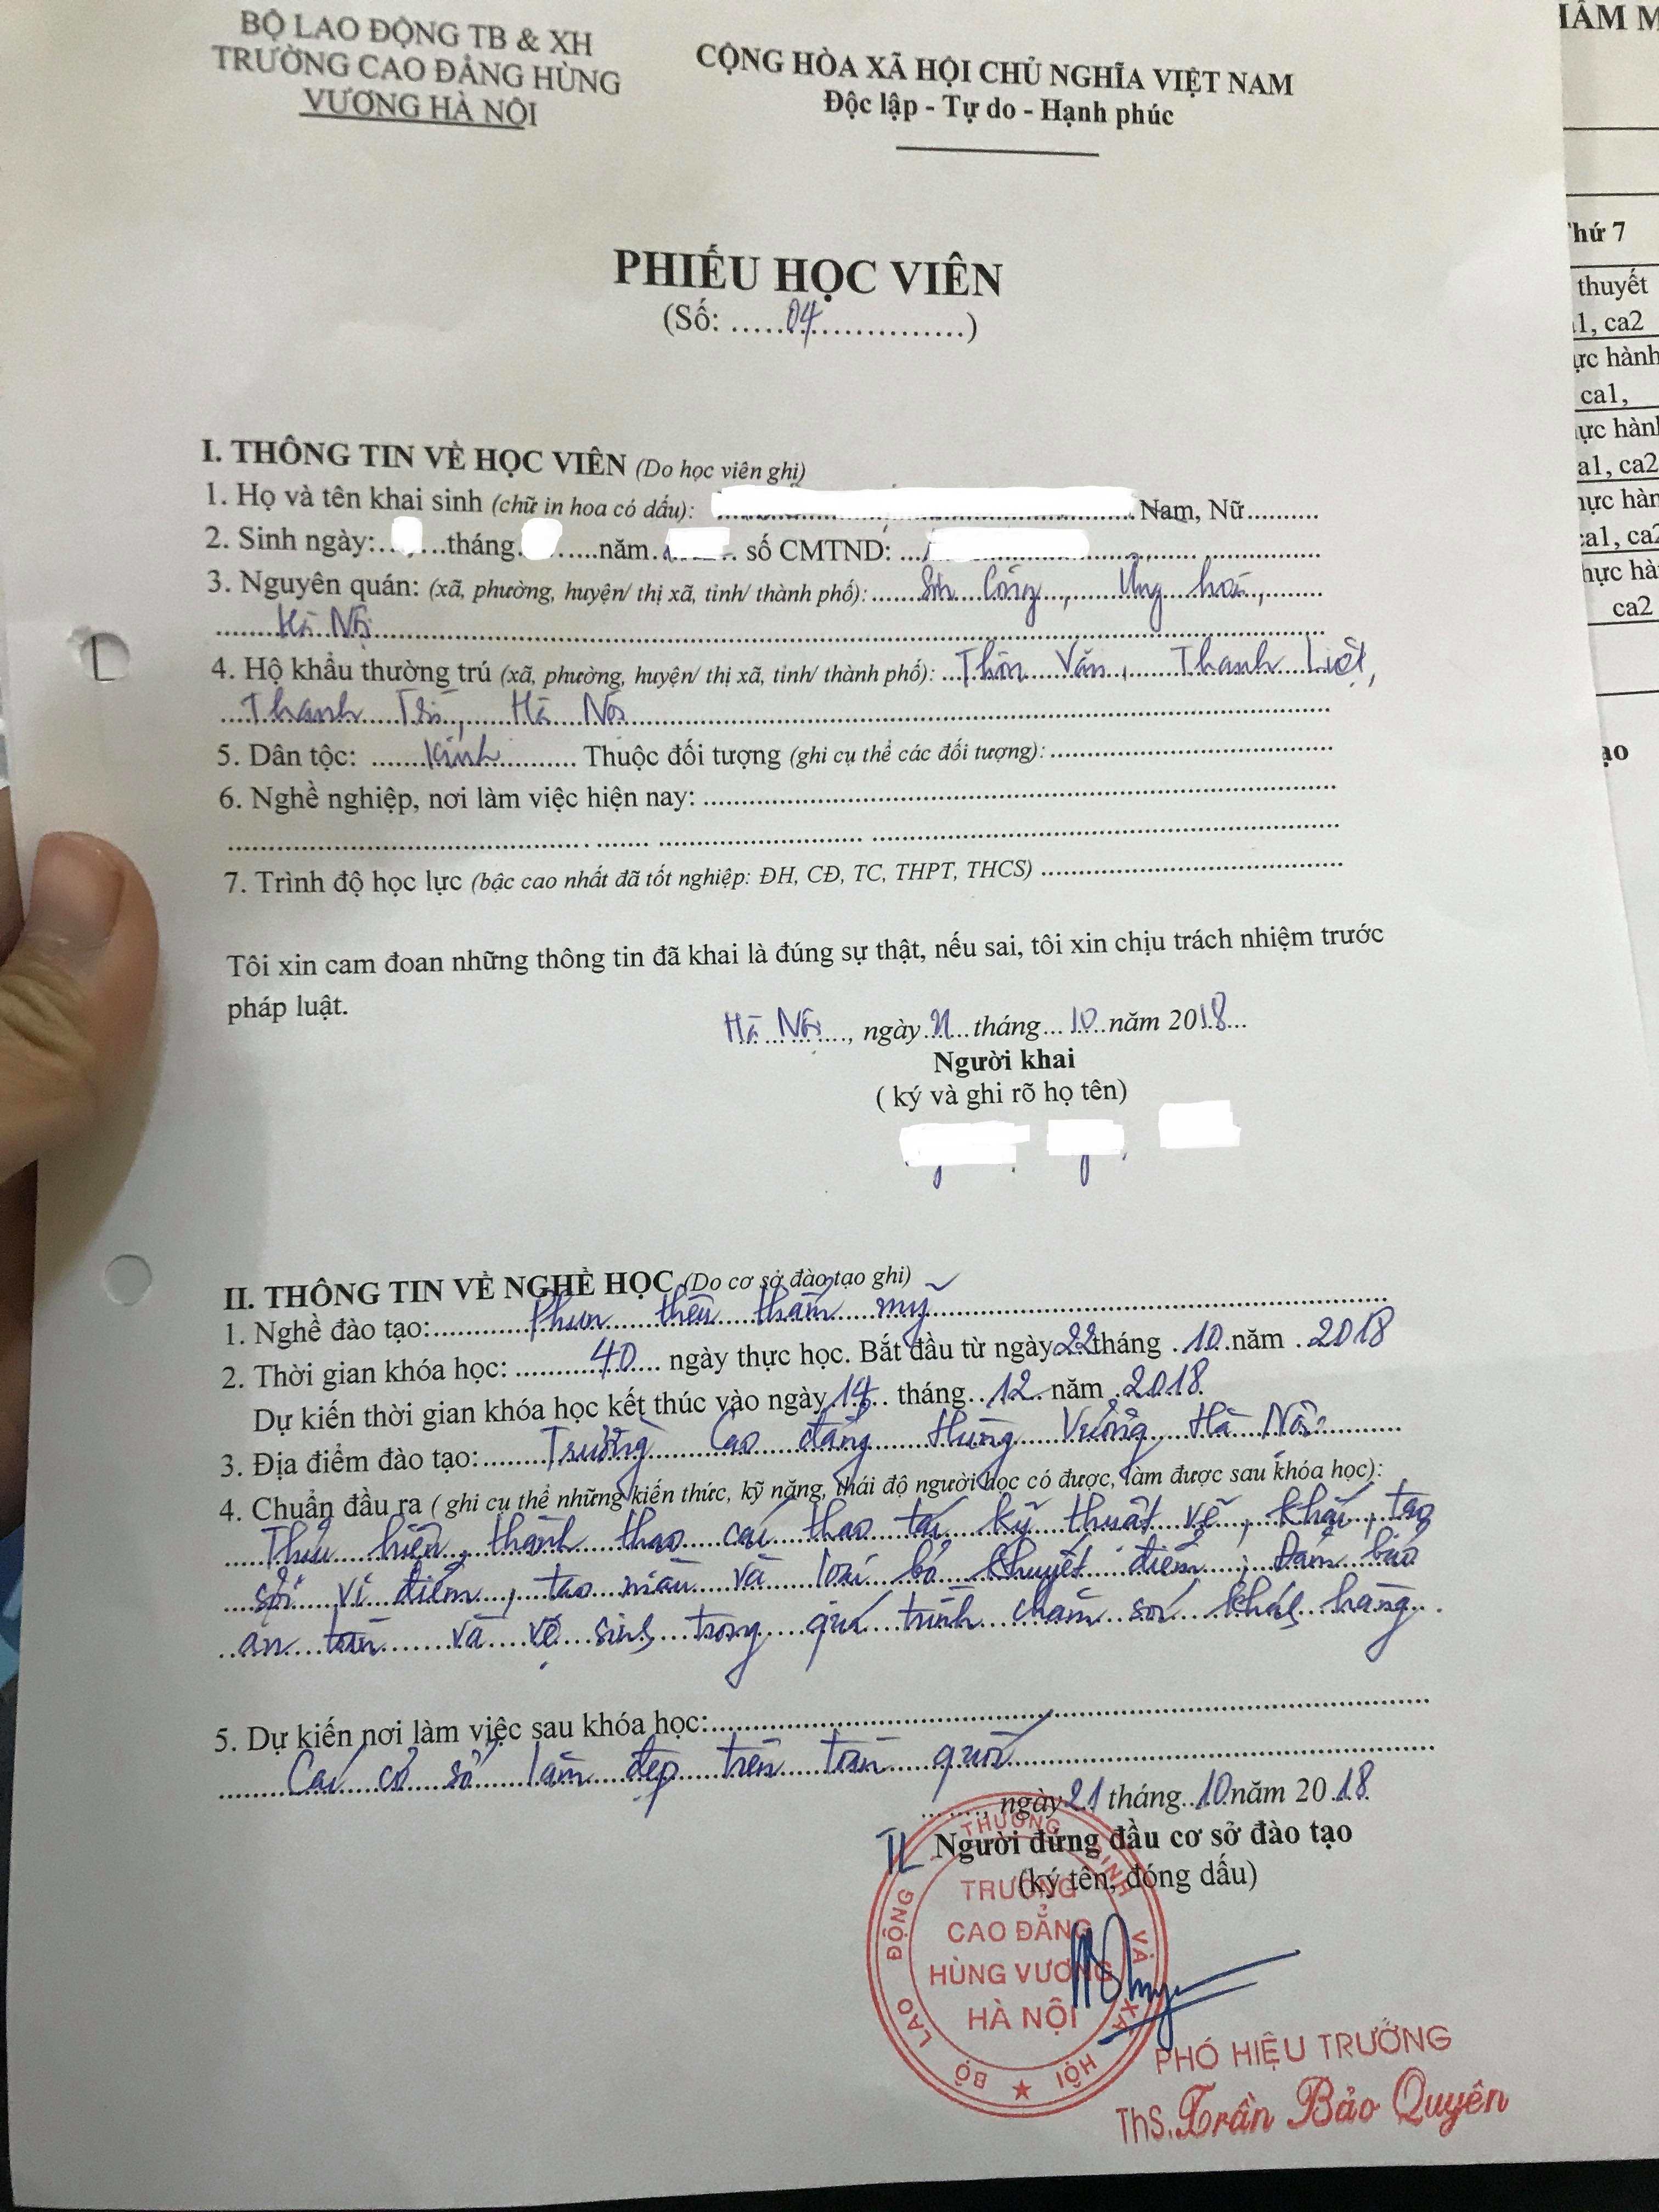 BỘ LAO ĐỘNG TB & XH
TRƯỜNG CAO ĐẲNG HÙNG
VƯƠNG HÀ NỘI
CỘNG HÒA XÃ HỘI CHỦ NGHĨA VIỆT NAM
Độc lập - Tự do - Hạnh phúc
PHIẾU HỌC VIÊN
(Số: .....04...............)
I. THÔNG TIN VỀ HỌC VIÊN (Do học viên ghi)
1. Họ và tên khai sinh (chữ in hoa có dấu): Nam, Nữ..........
2. Sinh ngày:.......tháng.......năm....... số CMTND: ...
3. Nguyên quán: (xã, phường, huyện/ thị xã, tỉnh/ thành phố): Công, Ứng hoà,
Hà Nội
4. Hộ khẩu thường trú (xã, phường, huyện/ thị xã, tỉnh/ thành phố): Thôn Văn, Thanh Liệt,
Thanh Trì, Hà Nội
5. Dân tộc: .......Kinh........... Thuộc đối tượng (ghi cụ thể các đối tượng):
6. Nghề nghiệp, nơi làm việc hiện nay:
7. Trình độ học lực (bậc cao nhất đã tốt nghiệp: ĐH, CĐ, TC, THPT, THCS)
Tôi xin cam đoan những thông tin đã khai là đúng sự thật, nếu sai, tôi xin chịu trách nhiệm trước
pháp luật.
Hà Nội, ngày 21 tháng 10 năm 2018
Người khai
( ký và ghi rõ họ tên)
II. THÔNG TIN VỀ NGHỀ HỌC (Do cơ sở đào tạo ghi)
1. Nghề đào tạo: Phun thêu thẩm mỹ
2. Thời gian khóa học: 40 ngày thực học. Bắt đầu từ ngày 22 tháng 10 năm 2018
Dự kiến thời gian khóa học kết thúc vào ngày 14 tháng 12 năm 2018
3. Địa điểm đào tạo: Trường Cao đẳng Hùng Vương Hà Nội
4. Chuẩn đầu ra ( ghi cụ thể những kiến thức, kỹ năng, thái độ người học có được, làm được sau khóa học):
Thực hiện thành thạo các thao tác kỹ thuật vẽ, khắc, tạo
sợi vi điểm, tạo màu và loại bỏ khuyết điểm; Đảm bảo
an toàn và vệ sinh trong quá trình chăm sóc khách hàng.
5. Dự kiến nơi làm việc sau khóa học:
Các cơ sở làm đẹp trên toàn quốc
........, ngày 21 tháng 10 năm 2018
TL Người đứng đầu cơ sở đào tạo
(ký tên, đóng dấu)
BỘ LAO ĐỘNG THƯƠNG BINH VÀ XÃ HỘI
TRƯỜNG
CAO ĐẲNG
HÙNG VƯƠNG
HÀ NỘI
PHÓ HIỆU TRƯỞNG
ThS. Trần Bảo Quyên
IÂM M
Thứ 7
thuyết
a1, ca2
ực hành
ca1,
ực hành
a1, ca2
hực hàn
ca1, ca2
hực hà
ca2
ạo